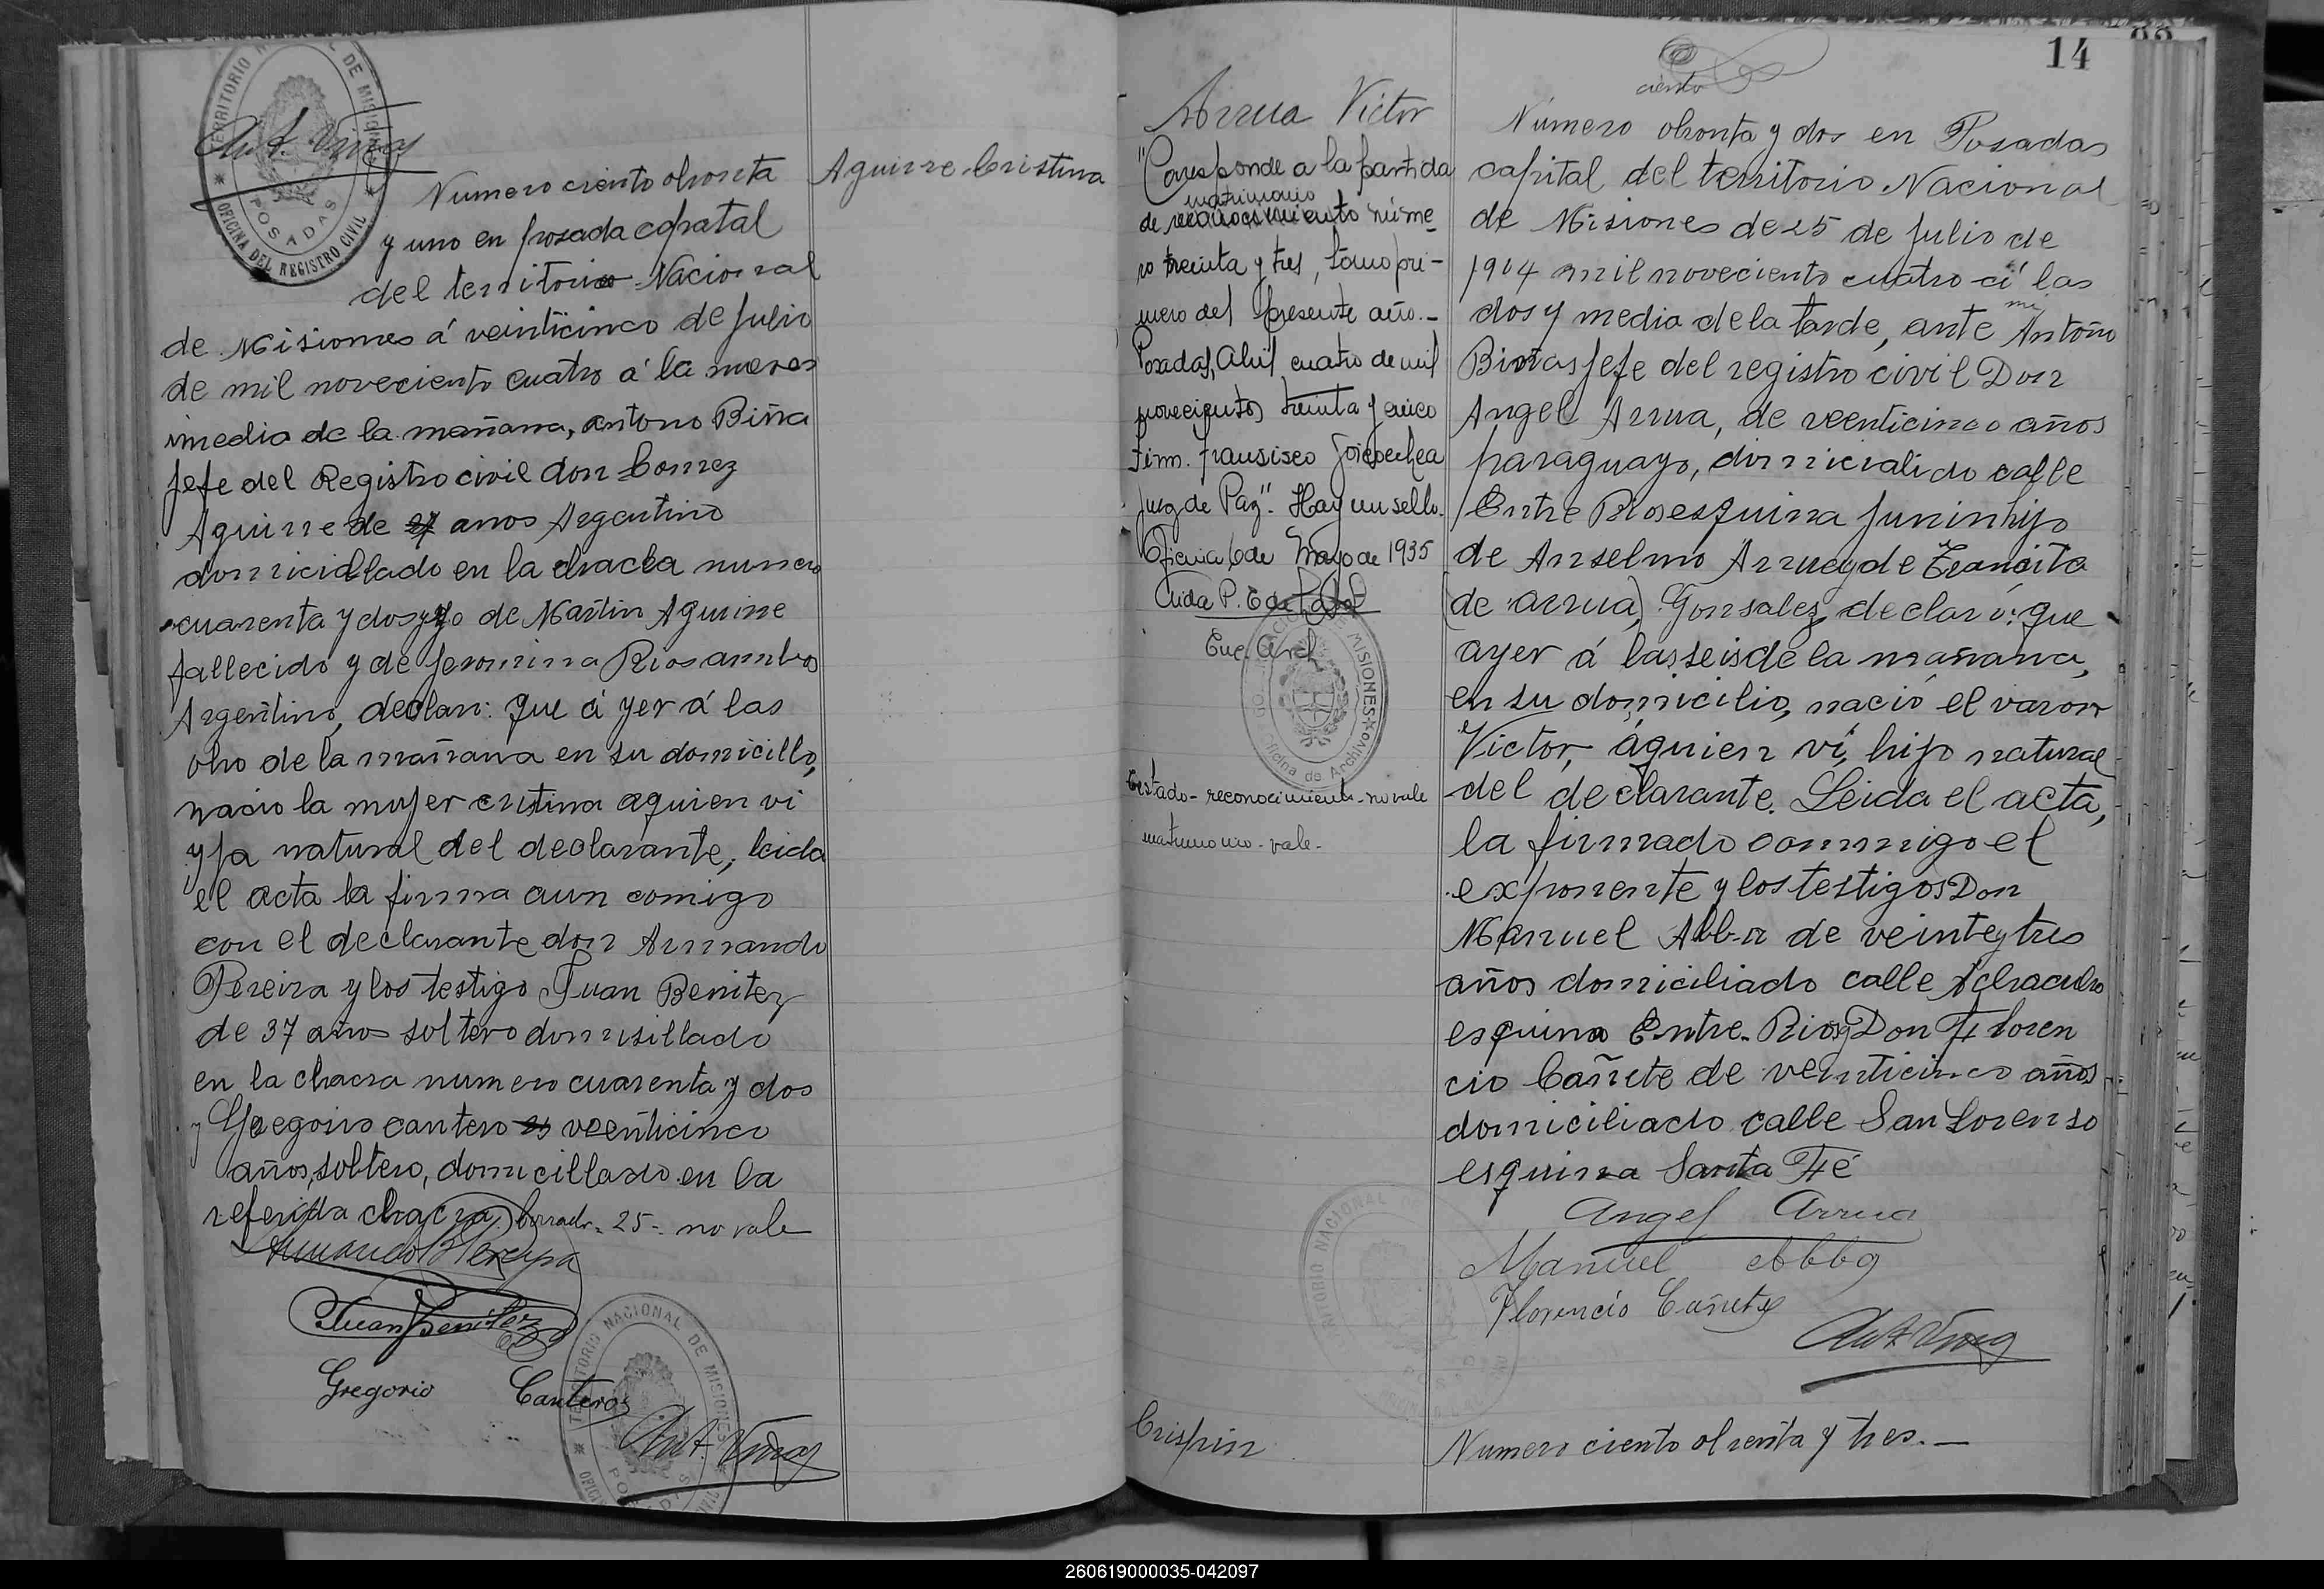 TERRITORIO NACIONAL DE MISIONES
POSADAS
OFICINA DEL REGISTRO CIVIL
Ant. Viñas
Numero ciento ochenta
y uno en posada capatal
del territorio Nacional
de Misiones á veinticinco de Julio
de mil noveciento cuatro a' la nueve
imedia de la mañana, antono Biña
Jefe del Registro civil don Comez
Aguirre de 27 anos Argentino
domicidlado en la chacla numero
cuarenta y dos yjo de Martin Aguirre
fallecido y de Jeronima Rios ambos
Argentino, declaro: que á yer á las
oho de la mañana en su domicillo,
nacio la mujer cristina aquien vi
yja natural del declarante, leida
el acta la firma aun comigo
con el declarante don Armando
Pereira y los testigo Juan Benitez
de 37 años soltero domisillado
en la chacra numero cuarenta y dos
y Gregorio cantero 25 veenticinco
años, soltero, domicillado en la
referida chacra, borrado - 25 - no vale
Armando Pereyra
Juan Benitez
Gregorio Canteros
Ant. Viñas
TERRITORIO NACIONAL DE MISIONES
Aguirre Cristina
Arrua Victor
"Coresponde a la partida
matrimonio
de reconocimiento núme
ro treinta y tres, tomo pri-
mero del presente año.-
Posadas, Abril cuatro de mil
novecientos treinta y cinco
Firm. Fransisco Goicoechea
Juez de Paz". Hay un sello.
Oficina 6 de Mayo de 1935
Enc. Arch.
MISIONES
Oficina de Archivos
Testado - reconocimiento - no vale
matrimonio - vale -
Crispin
14
ciento
Número ohonta y dos en Posadas
capital del territorio Nacional
de Misiones de 25 de Julio de
1904 mil noveciento cuatro á las
mi
dos y media de la tarde, ante Antoño
Biñas Jefe del registro civil Don
Angel Arrua, de veenticinco años
paraguayo, domicialido calle
Entre Rios esquina Junin hijo
de Anselmo Arrua y de Trancita
(de arrua) Gonsalez, declaró: que
ayer á las seis de la mañana,
en su domicilio, nació el varon
Victor, áquien ví, hijo natural
del declarante. Leida el acta,
la firmado conmigo el
exponente y los testigos Don
Manuel Abba de veinteytres
años domiciliado calle Ayacucho
esquina Entre-Rios y Don Floren
cio Cañete de veinticinco años
domiciliado calle San Lorenso
esquina Santa Fé
Angel Arrua
Manuel Abba
Florencio Cañete
Ant Viñas
Numero ciento ohenta y tres. —
260619000035-042097